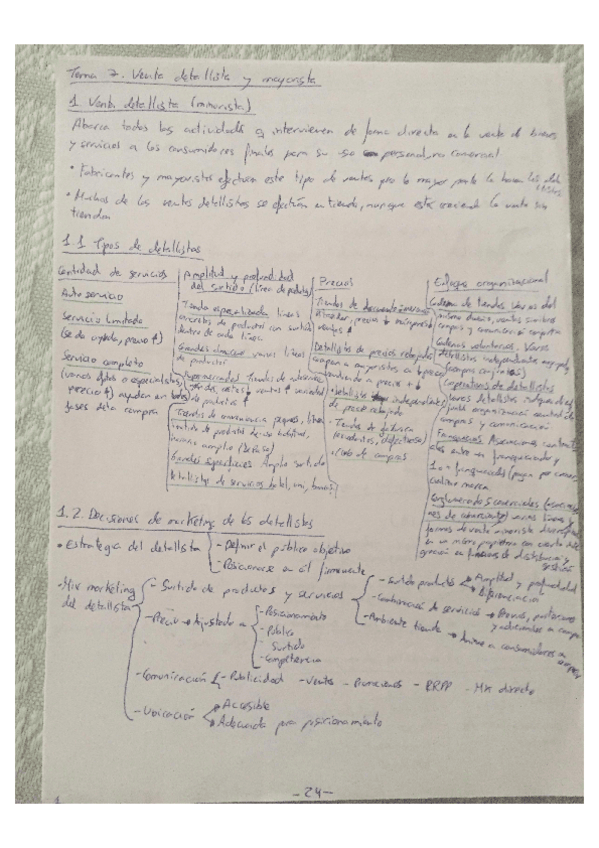 Tema 7. Venta detallista y mayorista
1. Venta detallista (minorista)
Abarca todas las actividades q intervienen de forma directa en la venta de bienes
y servicios a los consumidores finales para su uso personal, no comercial.
• Fabricantes y mayoristas efectúan este tipo de ventas pero la mayor parte la hacen los detallistas
• Muchas de las ventas detallistas se efectúan en tienda, aunque está creciendo la venta sin
tiendas
1.1 Tipos de detallistas
Cantidad de servicios
Auto servicio
Servicio limitado
(se da ayuda, precio ↑)
Servicio completo
(varios dptos o especialistas,
precio ↑) ayudan en todas
fases de la compra
Amplitud y profundidad
del surtido (línea de pdtos)
Tienda especializada líneas
estrechas de productos con surtido
dentro de cada línea
Grandes almacenes varias líneas
de productos
Supermercados Tiendas de autoservicio
de productos ↑
Tiendas de conveniencia pequeñas, línea
limitada de productos de uso habitual,
horario amplio
Grandes superficies Amplio surtido
Detallistas de servicios hotel, uni, bancos
Precios
Tiendas de descuento
Detallistas de precios rebajados
compran a mayoristas a ↓ precio
vendiendo a precio ↓
• Detallistas independientes
de precio rebajado
• Tiendas de fábrica
(excedentes, defectuosos)
• Club de compras
Enfoque organizacional
Cadena de tiendas Varias del
mismo dueño, surtidos similares
compras y comunicación conjuntas
Cadenas voluntarias Varios
detallistas independientes
(compras conjuntas)
Cooperativas de detallistas
Varios detallistas independientes
organización central de
compras y comunicación
Franquicias Asociaciones contractuales
entre un franquiciador y
1 o + franquiciados (pagan por
marca
Conglomerados comerciales
varias líneas y
formas de venta minorista
en un mismo propietario con cierta
integración en funciones de distribución y
gestión
1.2. Decisiones de marketing de los detallistas
• Estrategia del detallista
- Definir el público objetivo
- Posicionarse en él firmemente
• Mix marketing
del detallista
- Surtido de productos y servicios
- Surtido productos
Amplitud y profundidad
Diferenciación
- Combinación de servicios
y adicionales a compra
- Ambiente tienda → Animar a consumidores a
comprar
- Precio → Ajustado a
- Posicionamiento
- Público
- Surtido
- Competencia
- Comunicación
- Publicidad - Ventas - Promociones - RRPP - Mk directo
- Ubicación
Accesible
Adecuada para posicionamiento
-24-